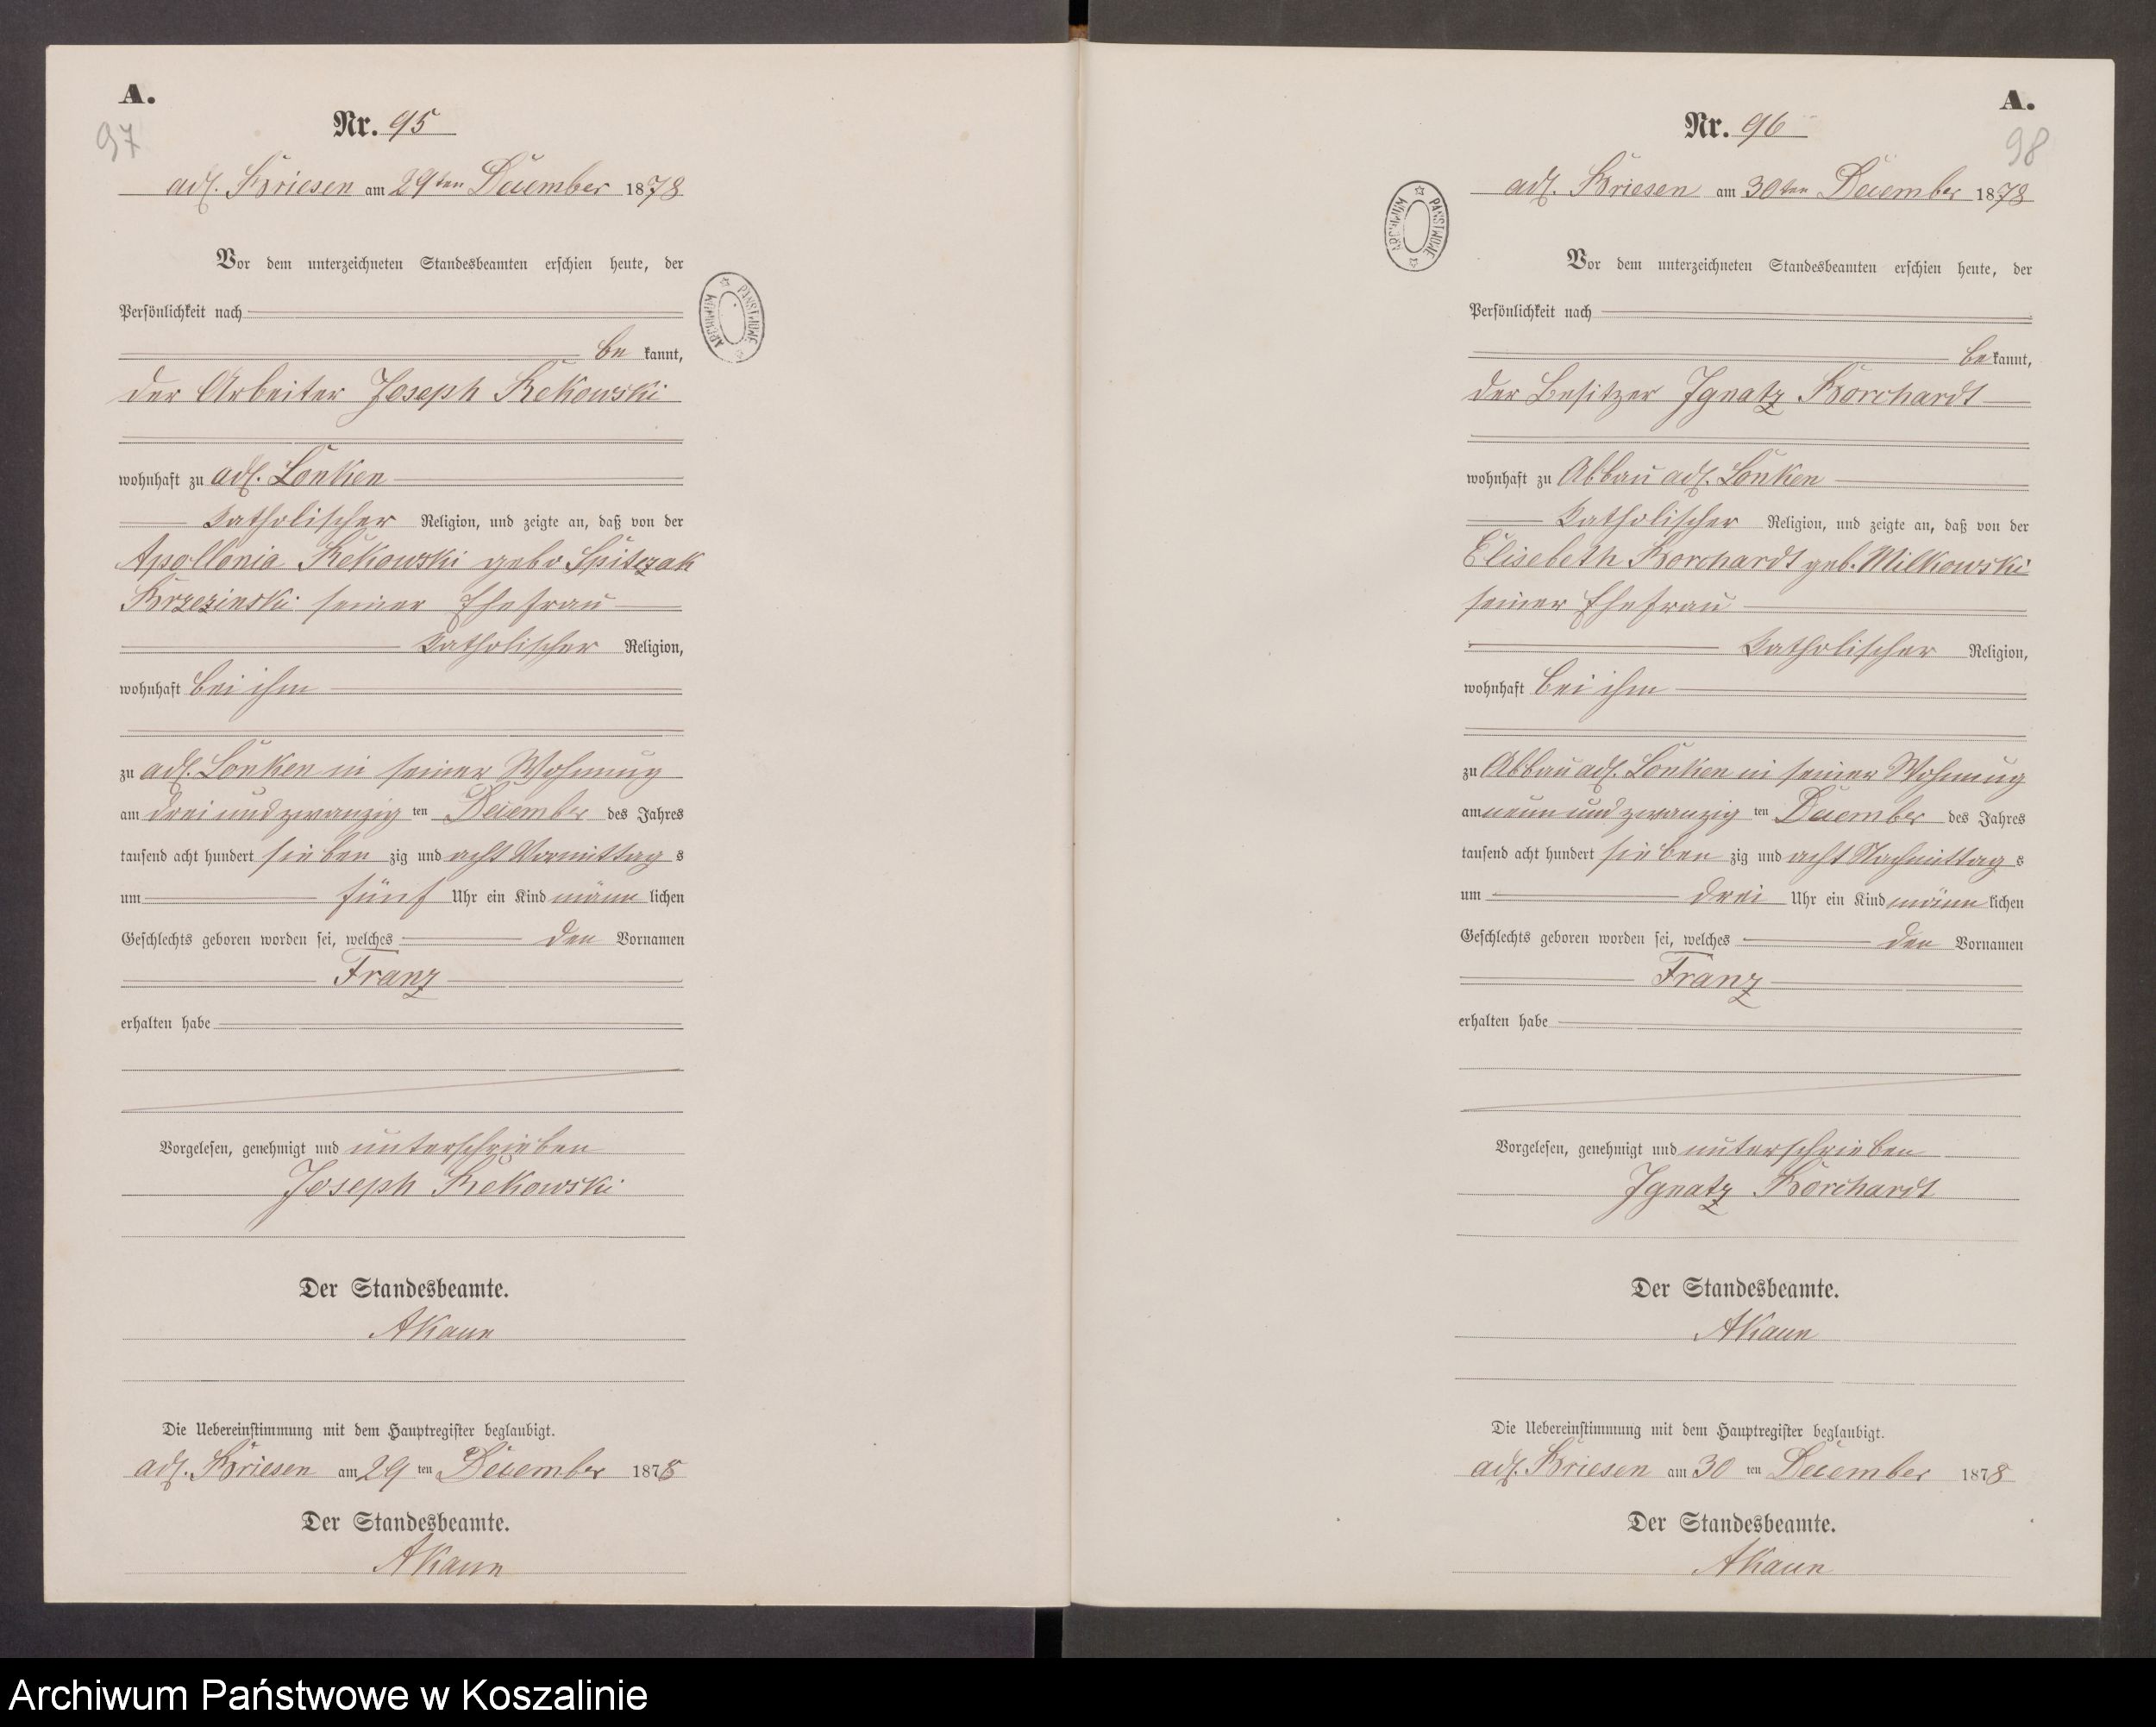 A.
97
Nr. 95
adl. Briesen am 29ten December 1878
Vor dem unterzeichneten Standesbeamten erschien heute, der
Persönlichkeit nach
be kannt,
der Arbeiter Joseph Rekowski
wohnhaft zu adl. Lonken
katholischer Religion, und zeigte an, daß von der
Apollonia Rekowski gebo Spitczak
Brzezinski seiner Ehefrau
katholischer Religion,
wohnhaft bei ihm
zu adl. Lonken in seiner Wohnung
am drei und zwanzig ten December des Jahres
tausend acht hundert sieben zig und acht Vormittag s
um fünf Uhr ein Kind männ lichen
Geschlechts geboren worden sei, welches den Vornamen
Franz
erhalten habe
Vorgelesen, genehmigt und unterschrieben
Joseph Rekowski
Der Standesbeamte.
AKaun
Die Uebereinstimmung mit dem Hauptregister beglaubigt.
adl. Briesen am 29 ten December 1878
Der Standesbeamte.
AKaun
ARCHIWUM PAŃSTWOWE
A.
98
Nr. 96
adl. Briesen am 30ten December 1878
Vor dem unterzeichneten Standesbeamten erschien heute, der
Persönlichkeit nach
be kannt,
der Besitzer Ignatz Borchardt
wohnhaft zu Abbau adl. Lonken
katholischer Religion, und zeigte an, daß von der
Elisebeth Borchardt geb. Milkowski
seiner Ehefrau
katholischer Religion,
wohnhaft bei ihm
zu Abbau adl. Lonken in seiner Wohnung
am neun und zwanzig ten December des Jahres
tausend acht hundert sieben zig und acht Nachmittag s
um drei Uhr ein Kind männ lichen
Geschlechts geboren worden sei, welches den Vornamen
Franz
erhalten habe
Vorgelesen, genehmigt und unterschrieben
Ignatz Borchardt
Der Standesbeamte.
AKaun
Die Uebereinstimmung mit dem Hauptregister beglaubigt.
adl. Briesen am 30 ten December 1878
Der Standesbeamte.
AKaun
ARCHIWUM PAŃSTWOWE
Archiwum Państwowe w Koszalinie